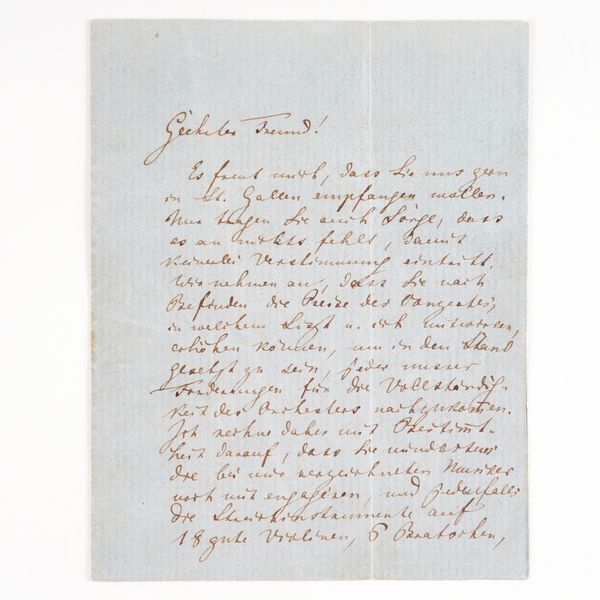 Geehrter Freund!
Es freut mich, dass Sie uns gern
in St. Gallen empfangen wollen.
Nun tragen Sie auch Sorge, dass
es an nichts fehlt, damit
keinerlei Verstimmung eintritt.
Wir nehmen an, dass Sie nach
Befinden die Preise des Conzertes,
in welchem Liszt u. ich mitwirken,
erhöhen können, um in den Stand
gesetzt zu sein, jeder unsrer
Forderungen für die Vollständig-
keit des Orchesters nachzukommen.
Ich rechne daher mit Bestimt-
heit darauf, dass Sie mindestens
die bei mir verzeichneten Musiker
noch mit engagiren, und jedenfalls
die Streichinstrumente auf
18 gute Violinen, 6 Bratschen,